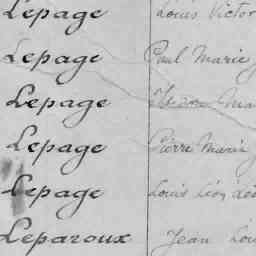 Lepage Louis Victor
Lepage Paul Marie
Lepage
Lepage Pierre Marie
Lepage Louis Léon
Leparoux Jean